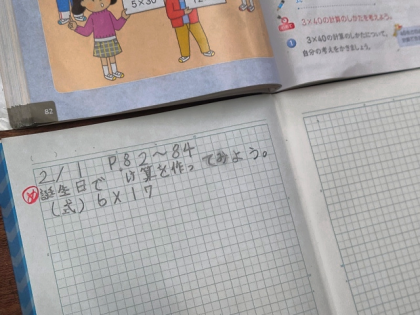 5×30
12
3×40の計算のしかたを考えよう。
1 3×40の計算のしかたについて、
自分の考えをかきましょう。
82
2/1 P.82〜84
め 誕生日で 計算を作ってみよう。
(式) 6×17